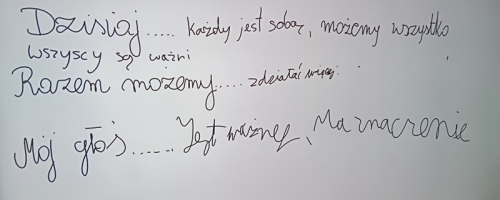 Dzisiaj..... każdy jest sobą, możemy wszystko
wszyscy są ważni
Razem możemy..... zdziałać więcej.
Mój głos...... Jest ważney, Ma znaczenie